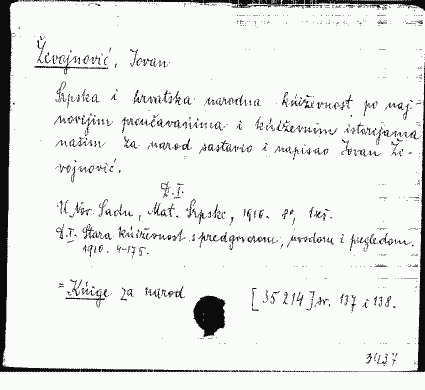 Živojnović, Jovan
Srpska i hrvatska narodna kńiževnost po naj-
novijim proučavańima i kńiževnim istorijama
našim za narod sastavio i napisao Jovan Ži-
vojnović.
D. I.
U Nov. Sadu, Mat. Srpske, 1910. 8º, 1 sv.
D. I. Stara kńiževnost s predgovorom, uvodom i pregledom.
1910. 4-175.
= Kńige za narod [35214] sv. 137 i 138.